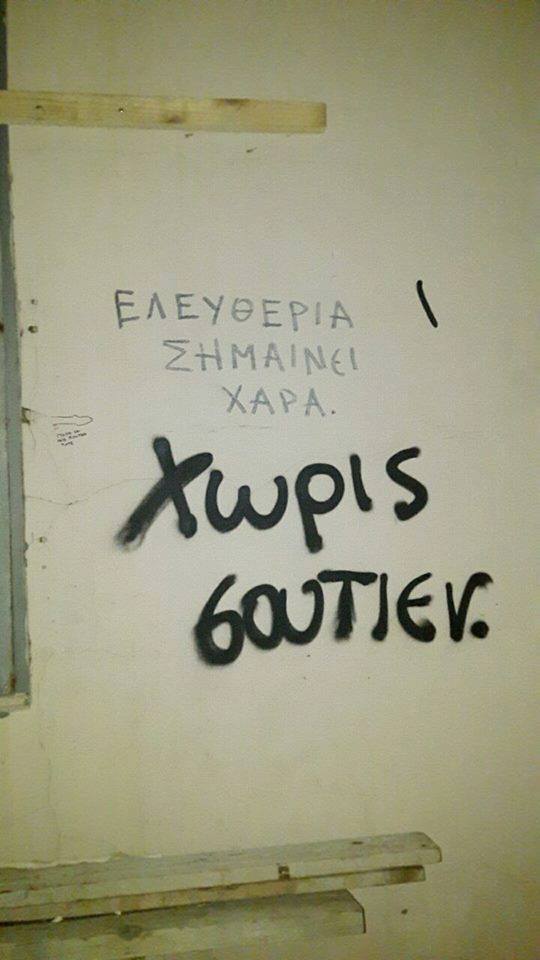 ΕΛΕΥΘΕΡΙΑ
ΣΗΜΑΙΝΕΙ
ΧΑΡΑ.
Χωρις
σουτιεν.